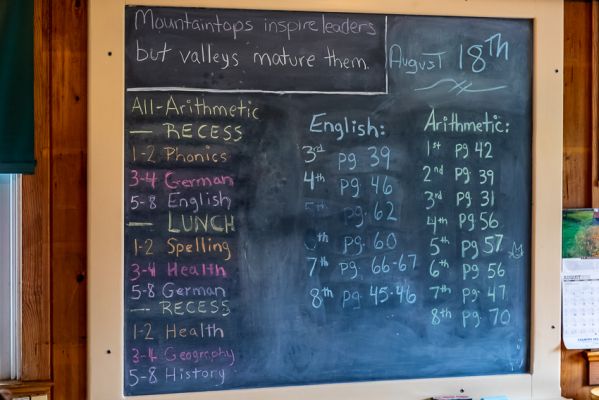 Mountaintops inspire leaders
but valleys mature them.
August 18th
All-Arithmetic
— RECESS
1-2 Phonics
3-4 German
5-8 English
— LUNCH
1-2 Spelling
3-4 Health
5-8 German
— RECESS
1-2 Health
3-4 Geography
5-8 History
English:
3rd pg 39
4th pg 46
5th pg. 62
6th pg. 60
7th pg. 66-67
8th pg. 45-46
Arithmetic:
1st pg 42
2nd pg 39
3rd pg 31
4th pg 56
5th pg 57
6th pg 56
7th pg. 47
8th pg. 70
AUGUST